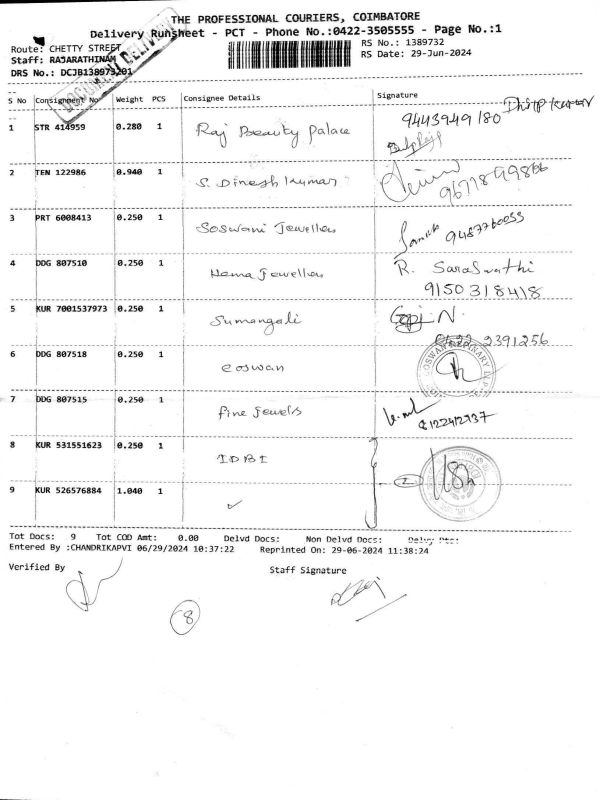 THE PROFESSIONAL COURIERS, COIMBATORE
Delivery Runsheet - PCT - Phone No.:0422-3505555 - Page No.:1
Route: CHETTY STREET
RS No.: 1389732
Staff: RAJARATHINAM
RS Date: 29-Jun-2024
DRS No.: DCJB138973201
DOCUMENT DELIVERY
S No Consignment No Weight PCS Consignee Details Signature
1 STR 414959 0.280 1 Raj Beauty Palace 9443949180
2 TEN 122986 0.940 1 S. Dinesh Kumar 9671899866
3 PRT 6008413 0.250 1 Soswani Jewellers 9487760055
4 DDG 807510 0.250 1 Hema Jewellers R. Saraswathi
9150318418
5 KUR 7001537973 0.250 1 Sumangali Gopi N.
0422 2391256
6 DDG 807518 0.250 1 eoswan
7 DDG 807515 0.250 1 fine Jewels 8122412737
8 KUR 531551623 0.250 1 IDBI
2
9 KUR 526576884 1.040 1 ✓
Tot Docs: 9 Tot COD Amt: 0.00 Delvd Docs: Non Delvd Docs: Delvy Pts:
Entered By :CHANDRIKAPVI 06/29/2024 10:37:22 Reprinted On: 29-06-2024 11:38:24
Verified By Staff Signature
8